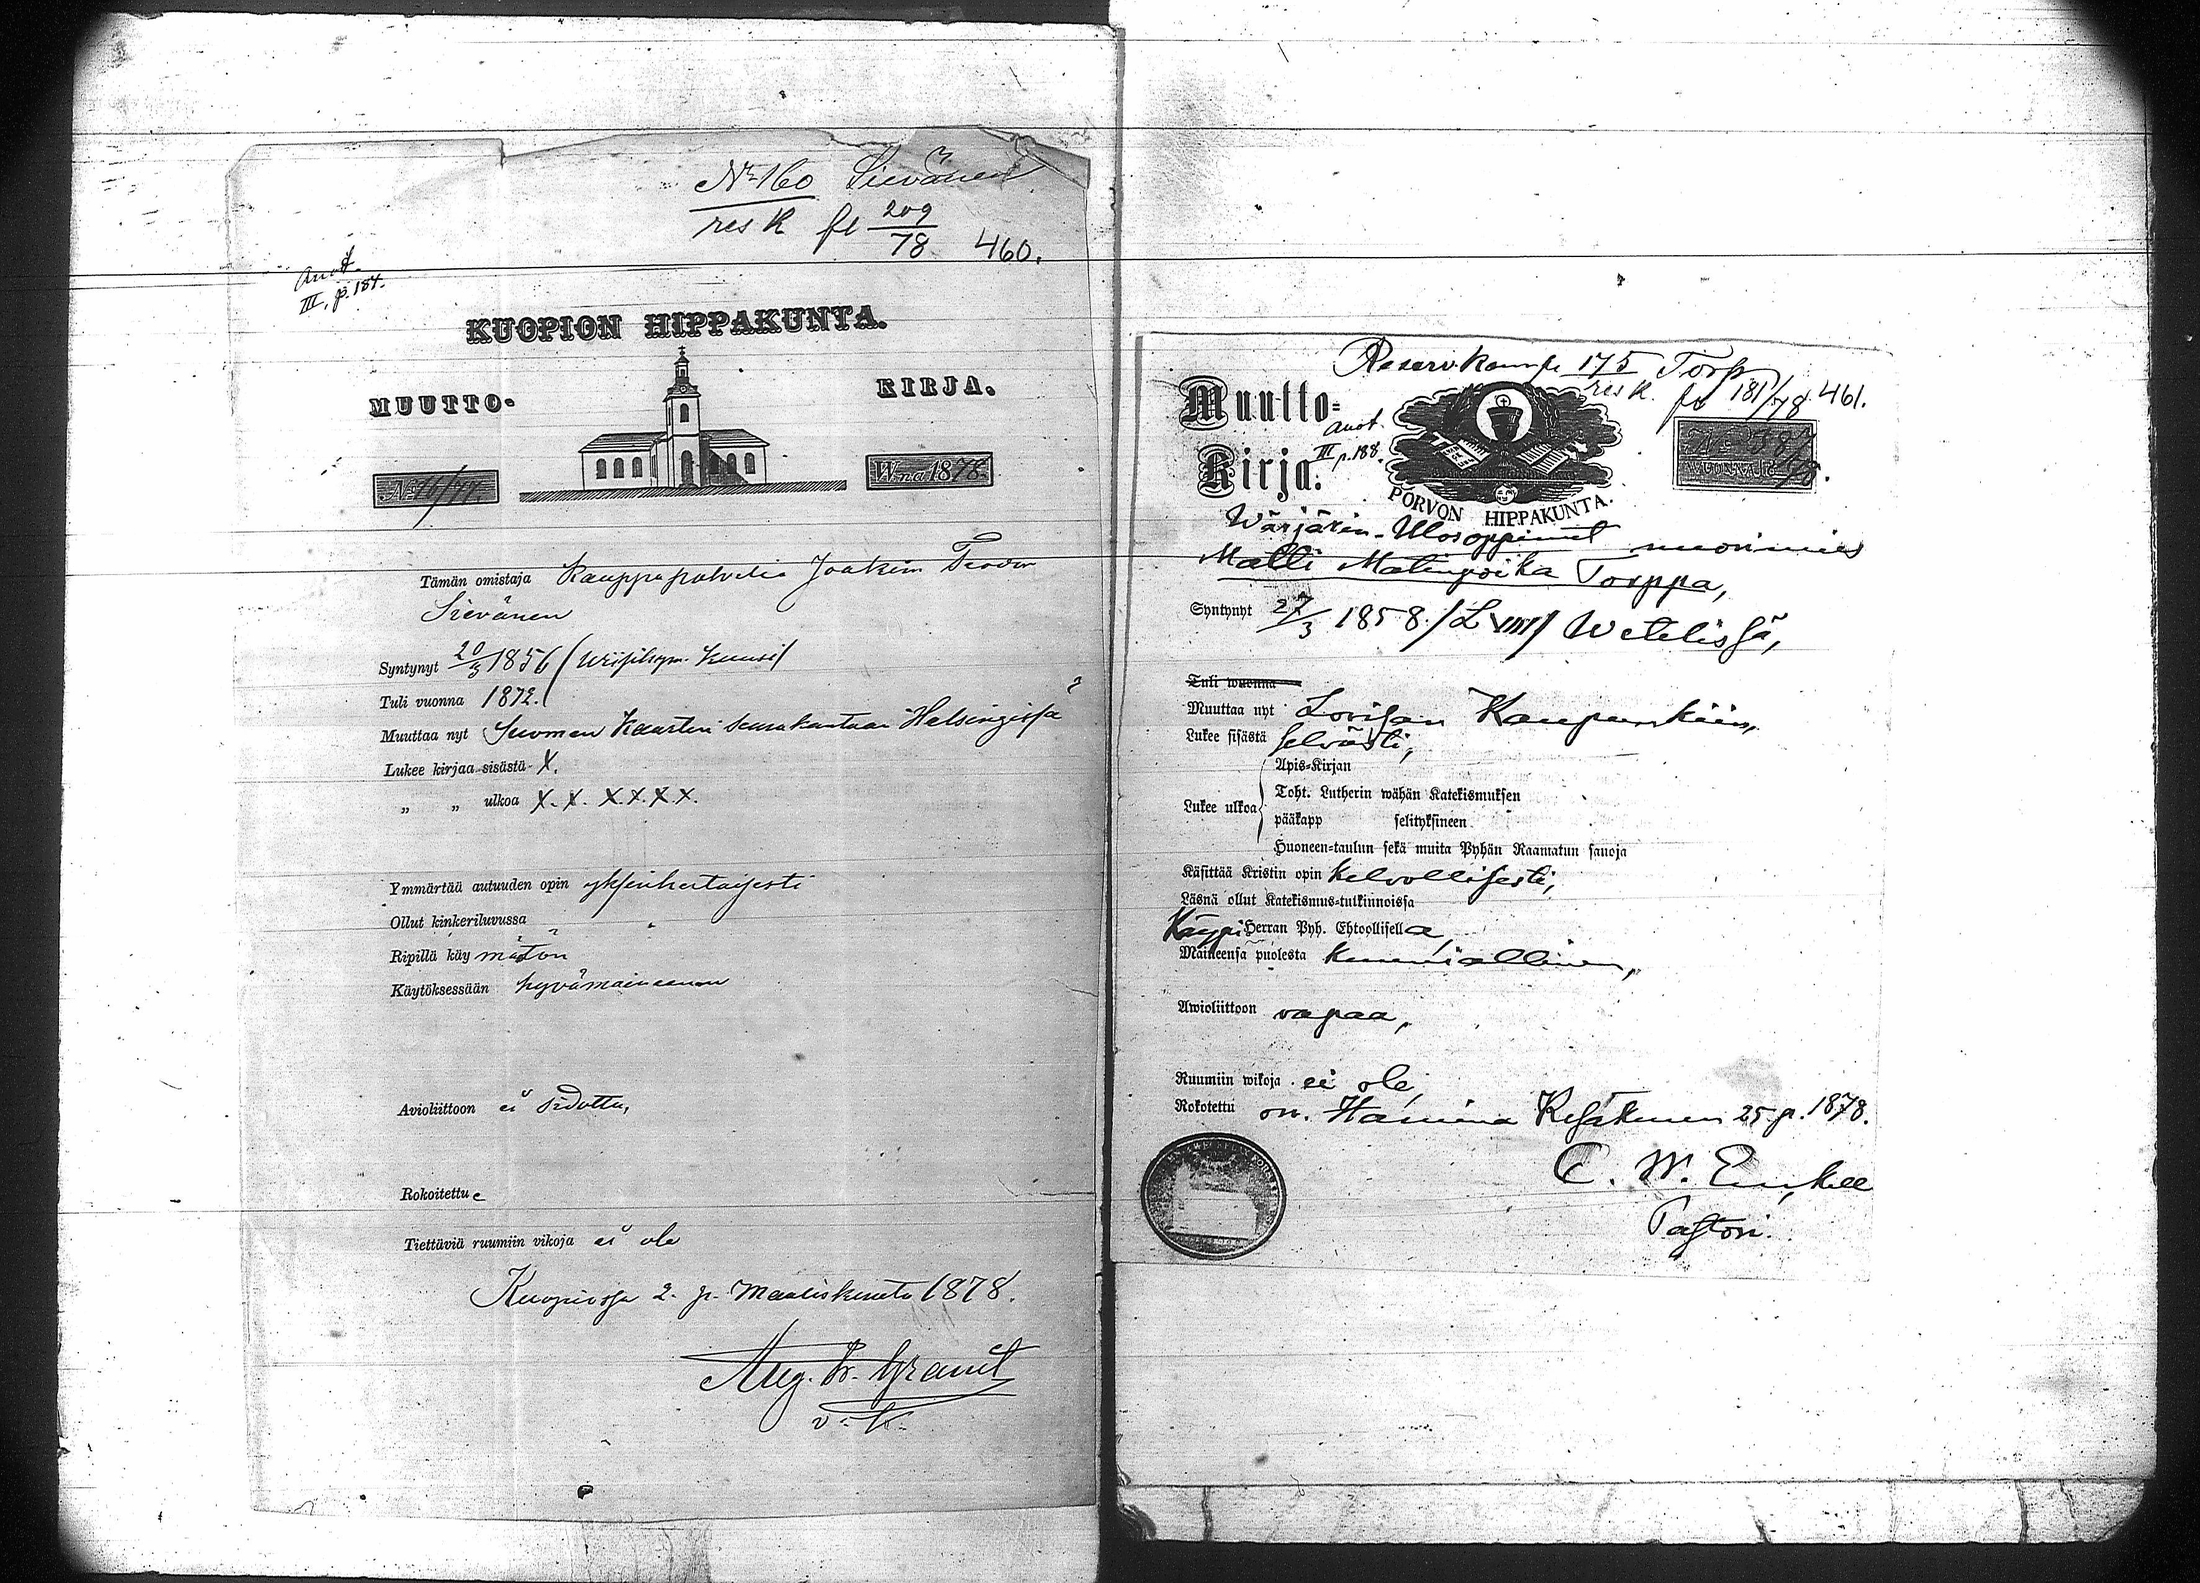 No 160 Sievänen
res k fl 209/78 460.
Anot.
III, p. 187.
KUOPION HIPPAKUNTA.
MUUTTO- KIRJA.
No 16/77. W:na 1878.
Tämän omistaja Kauppapalvelia Joakim Teodor
Sievänen
Syntynyt 20/3 1856 (Wiisikym. kuusi)
Tuli vuonna 1872.
Muuttaa nyt Suomen Kaartin seurakuntaan Helsingissä
Lukee kirjaa sisästä X.
„ „ ulkoa X. X. X.X.X.X.
Ymmärtää autuuden opin yksinkertaisesti
Ollut kinkeriluvussa
Ripillä käymätön
Käytöksessään hyvämaineinen
Avioliittoon ei sidottu,
Rokoitettu
Tiettäviä ruumiin vikoja ei ole
Kuopiossa 2. p. Maaliskuuta 1878.
Aug. Fr. Granit
v. k.
Reservkomp. 175 Torp
res k. fl 181/78 461.
Muutto-
Anot.
III p. 188.
Kirja.
PORVON HIPPAKUNTA.
Wärjärin-Ulosoppinut nuorimies
Matti Matinpoika Torppa,
Syntynyt 27/3 1858 /L VIII/ Wetelissä,
Tuli wuonna
Muuttaa nyt Lovisan Kaupunkiin,
Lukee sisästä selvästi,
Apis-Kirjan
Toht. Lutherin wähän Katekismuksen
Lukee ulkoa
pääkapp selityksineen
Huoneen-taulun sekä muita Pyhän Raamatun sanoja
Käsittää Kristin opin kelvollisesti,
Läsnä ollut Katekismus-tulkinnoissa
Käypi Herran Pyh. Ehtoollisella,
Maineensa puolesta kunniallinen,
Awioliittoon vapaa,
Ruumiin wikoja ei ole,
Rokotettu on. Hamina Kesäkuun 25 p. 1878.
C. W.
Pastori.